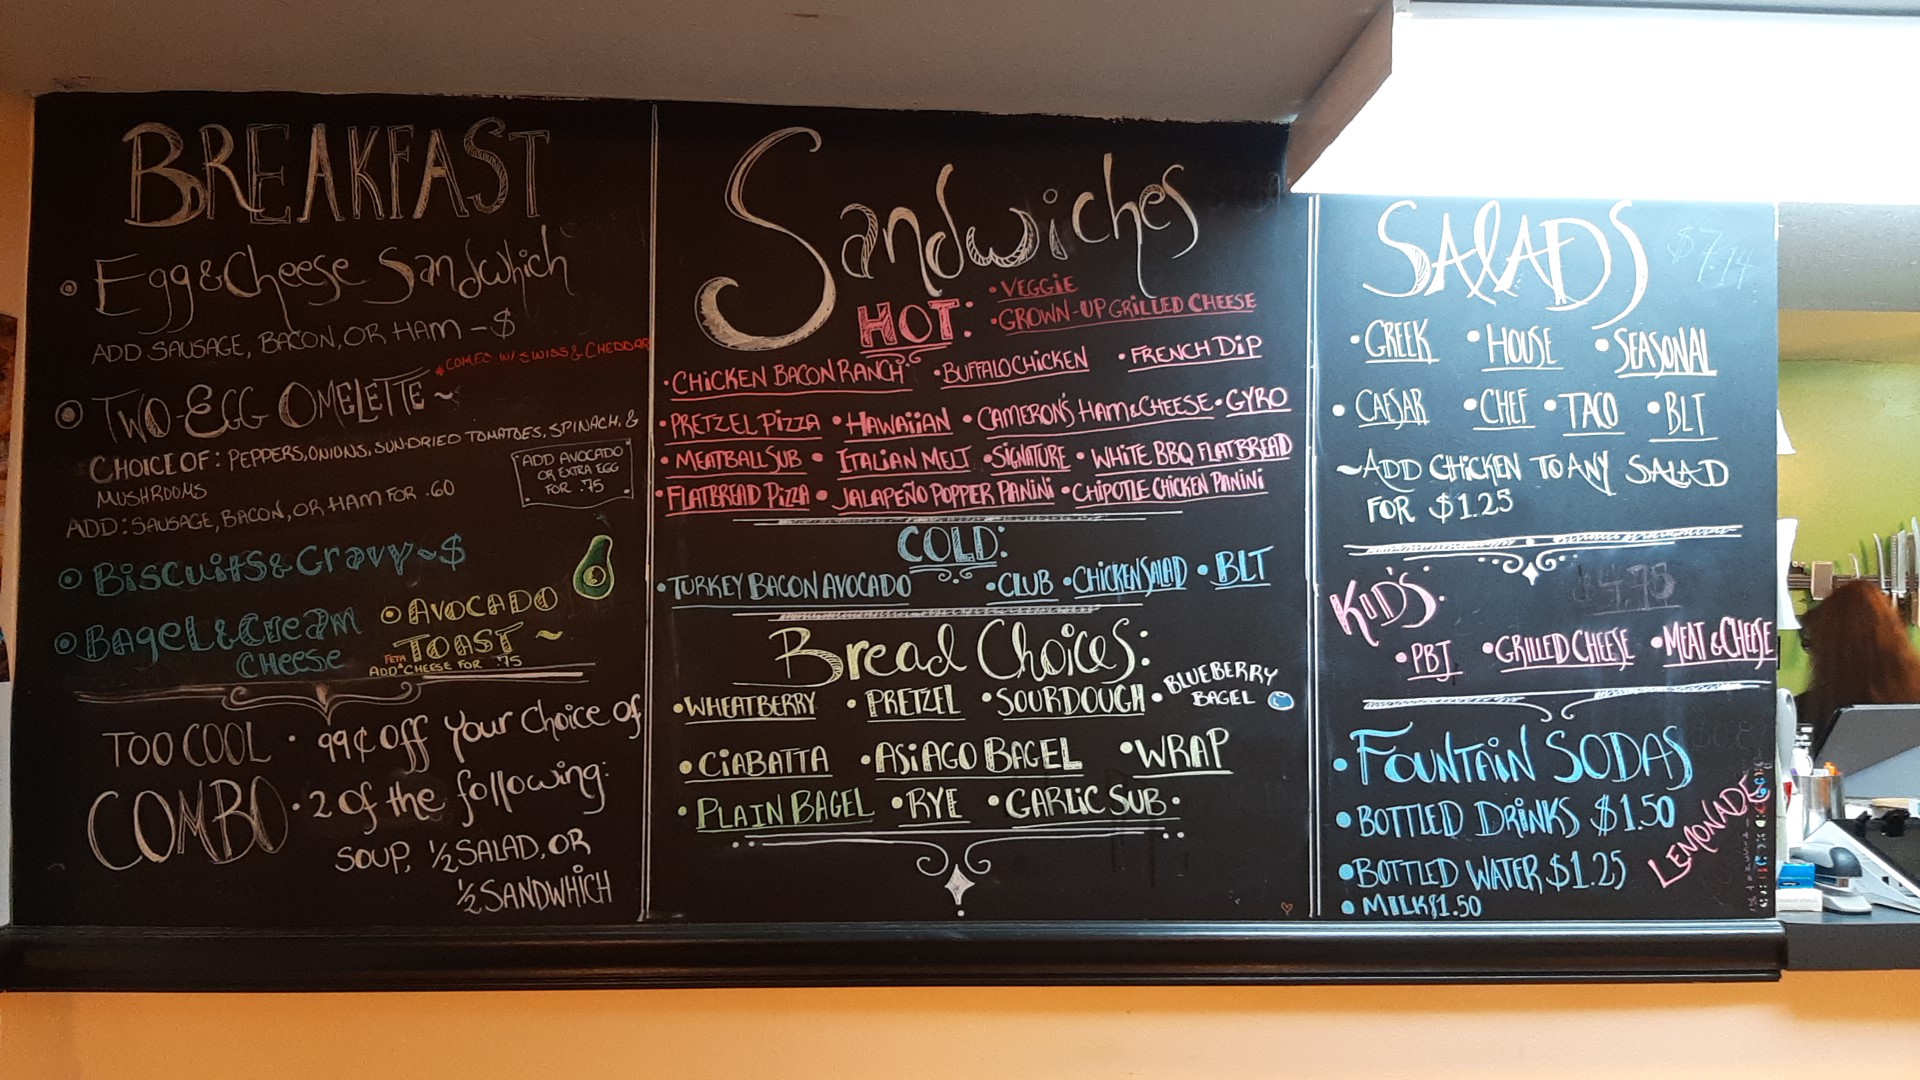 BREAKFAST
• Egg & Cheese Sandwhich
ADD SAUSAGE, BACON, OR HAM - $
*COMES W/ SWISS & CHEDDAR
• TWO-EGG OMELETTE ~
CHOICE OF: PEPPERS, ONIONS, SUN-DRIED TOMATOES, SPINACH, &
MUSHROOMS
ADD AVOCADO
OR EXTRA EGG
FOR .75
ADD: SAUSAGE, BACON, OR HAM FOR .60
• BISCUITS & GRAVY ~ $
• BAGEL & CREAM
CHEESE
• AVOCADO
TOAST ~
ADD FETA CHEESE FOR .75
TOO COOL
COMBO
• 99¢ off your choice of
• 2 of the following:
SOUP, ½ SALAD, OR
½ SANDWHICH
Sandwiches
HOT:
• VEGGIE
• GROWN-UP GRILLED CHEESE
• CHICKEN BACON RANCH • BUFFALO CHICKEN • FRENCH DIP
• PRETZEL PIZZA • HAWAIIAN • CAMERON'S HAM & CHEESE • GYRO
• MEATBALL SUB • ITALIAN MELT • SIGNATURE • WHITE BBQ FLATBREAD
• FLATBREAD PIZZA • JALAPEÑO POPPER PANINI • CHIPOTLE CHICKEN PANINI
COLD:
• TURKEY BACON AVOCADO • CLUB • CHICKEN SALAD • BLT
Bread Choices:
• WHEATBERRY • PRETZEL • SOURDOUGH • BLUEBERRY
BAGEL
• CIABATTA • ASIAGO BAGEL • WRAP
• PLAIN BAGEL • RYE • GARLIC SUB •
SALADS $7.14
• GREEK • HOUSE • SEASONAL
• CAESAR • CHEF • TACO • BLT
~ADD CHICKEN TO ANY SALAD
FOR $1.25
KID'S: $4.75
• PBJ • GRILLED CHEESE • MEAT & CHEESE
• FOUNTAIN SODAS
• BOTTLED DRINKS $1.50
LEMONADE
• BOTTLED WATER $1.25
• MILK $1.50